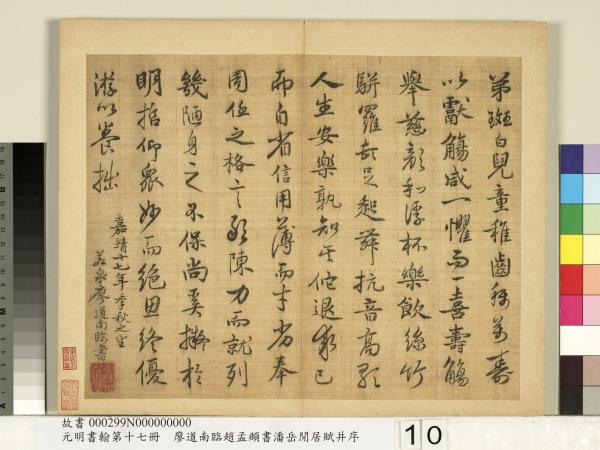 弟斑白兒童稚齒稱萬壽
以獻觴咸一懼而一喜壽觴
舉慈顏和浮杯樂飲絲竹
駢羅頓足起舞抗音高歌
人生安樂孰知其他退求己
而自省信用薄而才劣奉
周任之格言敢陳力而就列
幾陋身之不保尚奚擬於
明哲仰衆妙而絕思終優
游以養拙
嘉靖十七年季秋之望
廖道南臨書
故書 000299N000000000
元明書翰第十七冊 廖道南臨趙孟頫書潘岳閒居賦并序
10